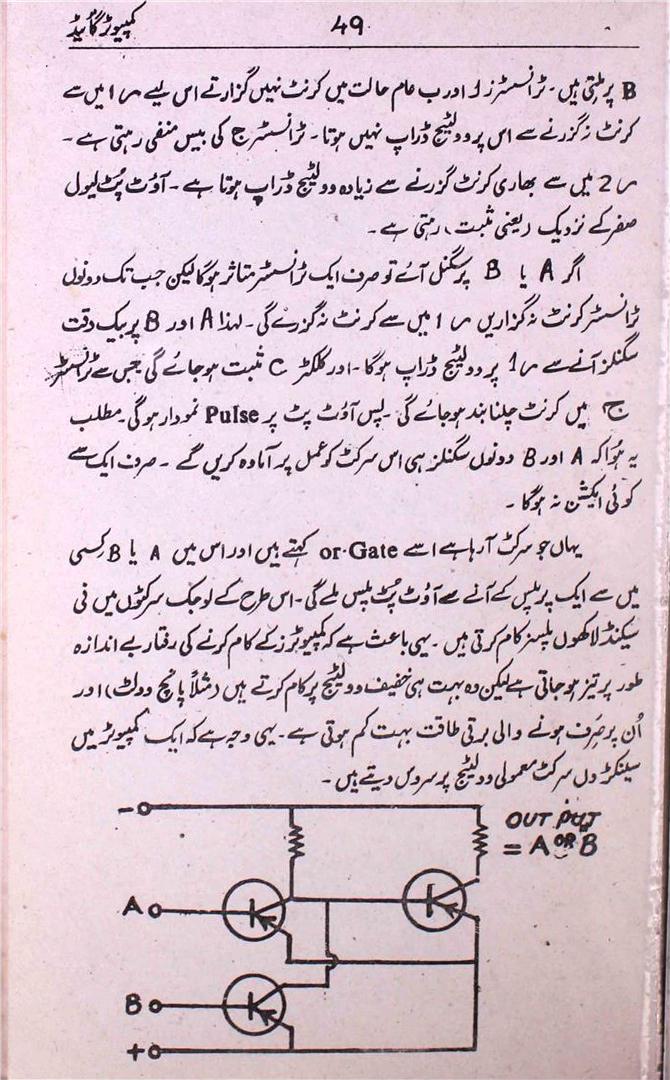 کمپیوٹر گائیڈ
49
B پر ملتی ہیں۔ ٹرانسسٹرز ا اور ب عام حالت میں کرنٹ نہیں گزارتے اس لیے م1 میں سے
کرنٹ نہ گزرنے سے اس پر وولٹیج ڈراپ نہیں ہوتا۔ ٹرانسسٹر ج کی بیس منفی رہتی ہے۔
م2 میں سے بھاری کرنٹ گزرنے سے زیادہ وولٹیج ڈراپ ہوتا ہے۔ آؤٹ پُٹ لیول
صفر کے نزدیک (یعنی مثبت) رہتی ہے۔
اگر A یا B پر سگنل آئے تو صرف ایک ٹرانسسٹر متاثر ہوگا لیکن جب تک دونوں
ٹرانسسٹر کرنٹ نہ گزاریں م1 میں سے کرنٹ نہ گزرے گی۔ لہذا A اور B پر بیک وقت
سگنلز آنے سے م1 پر وولٹیج ڈراپ ہوگا۔ اور کلکٹر C مثبت ہو جائے گی جس سے ٹرانسسٹر
ج میں کرنٹ چلنا بند ہو جائے گی۔ پس آؤٹ پٹ پر Pulse نمودار ہوگی۔ مطلب
یہ ہُوا کہ A اور B دونوں سگنلز ہی اس سرکٹ کو عمل پر آمادہ کریں گے۔ صرف ایک سے
کوئی ایکشن نہ ہوگا۔
یہاں جو سرکٹ آ رہا ہے اسے or-Gate کہتے ہیں اور اس میں A یا B کسی
میں سے ایک پر پلس کے آنے سے آؤٹ پُٹ پلس ملے گی۔ اس طرح کے لوجک سرکٹوں میں فی
سیکنڈ لاکھوں پلسز کام کرتی ہیں۔ یہی باعث ہے کہ کمپیوٹرز کے کام کرنے کی رفتار بے اندازہ
طور پر تیز ہو جاتی ہے لیکن وہ بہت ہی خفیف وولٹیج پر کام کرتے ہیں (مثلاً پانچ وولٹ) اور
اُن پر صَرف ہونے والی برقی طاقت بہت کم ہوتی ہے۔ یہی وجہ ہے کہ ایک کمپیوٹر میں
سینکڑوں سرکٹ معمولی وولٹیج پر سروس دیتے ہیں۔
−
OUT PUT
= A OR B
A
B
+